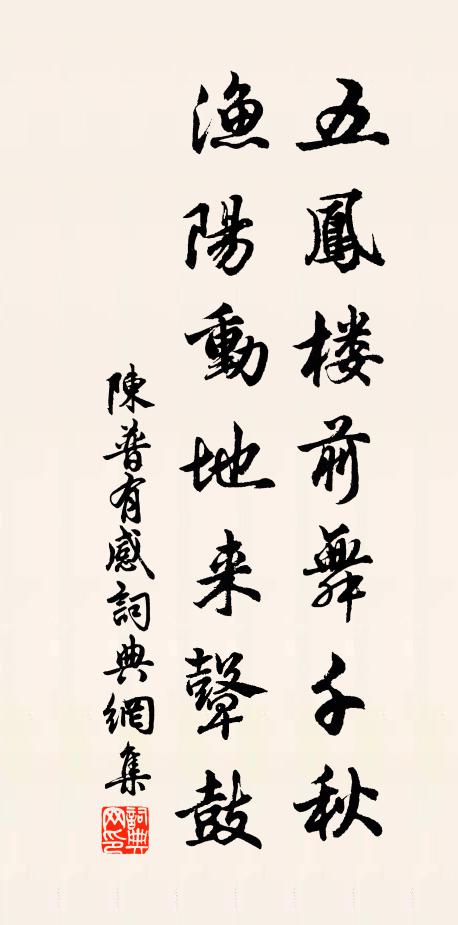 五鳳楼前舞千秋
漁陽動地来鼙鼓
陳普有感詞典網集
詞典网印